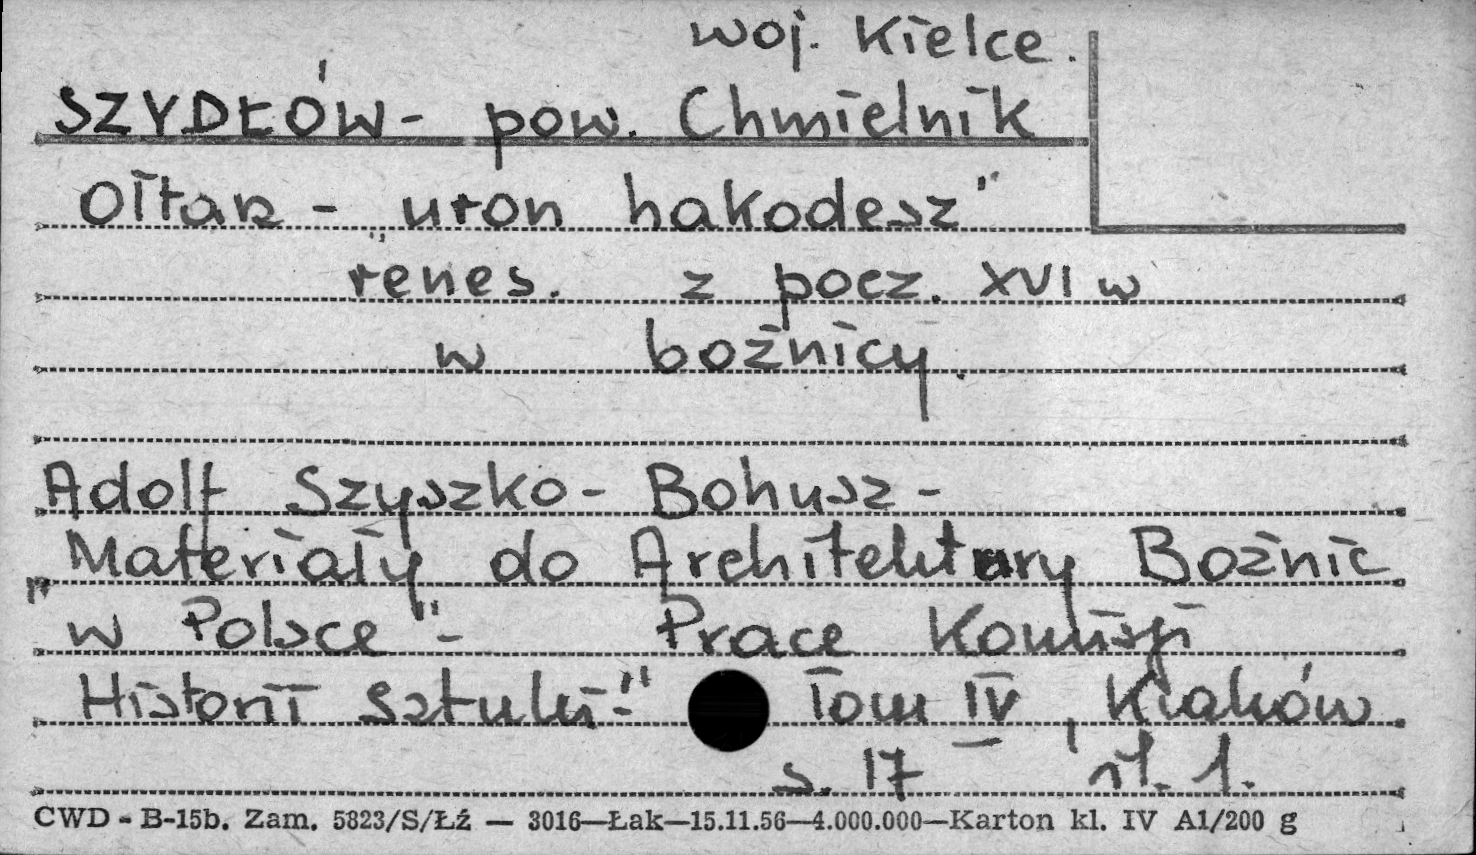 woj. Kielce.
SZYDŁÓW - pow. Chmielnik
Ołtarz - „uron hakodesz"
renes. z pocz. XVI w
w bożnicy.
Adolf Szyszko - Bohusz -
„Materiały do Architektury Bożnic
w Polsce" - Prace Komisji
Historii Sztuki - " Tom IV, Kraków
s. 17 rł. 1.
CWD - B-15b. Zam. 5823/S/Łź — 3016—Łak—15.11.56—4.000.000—Karton kl. IV A1/200 g